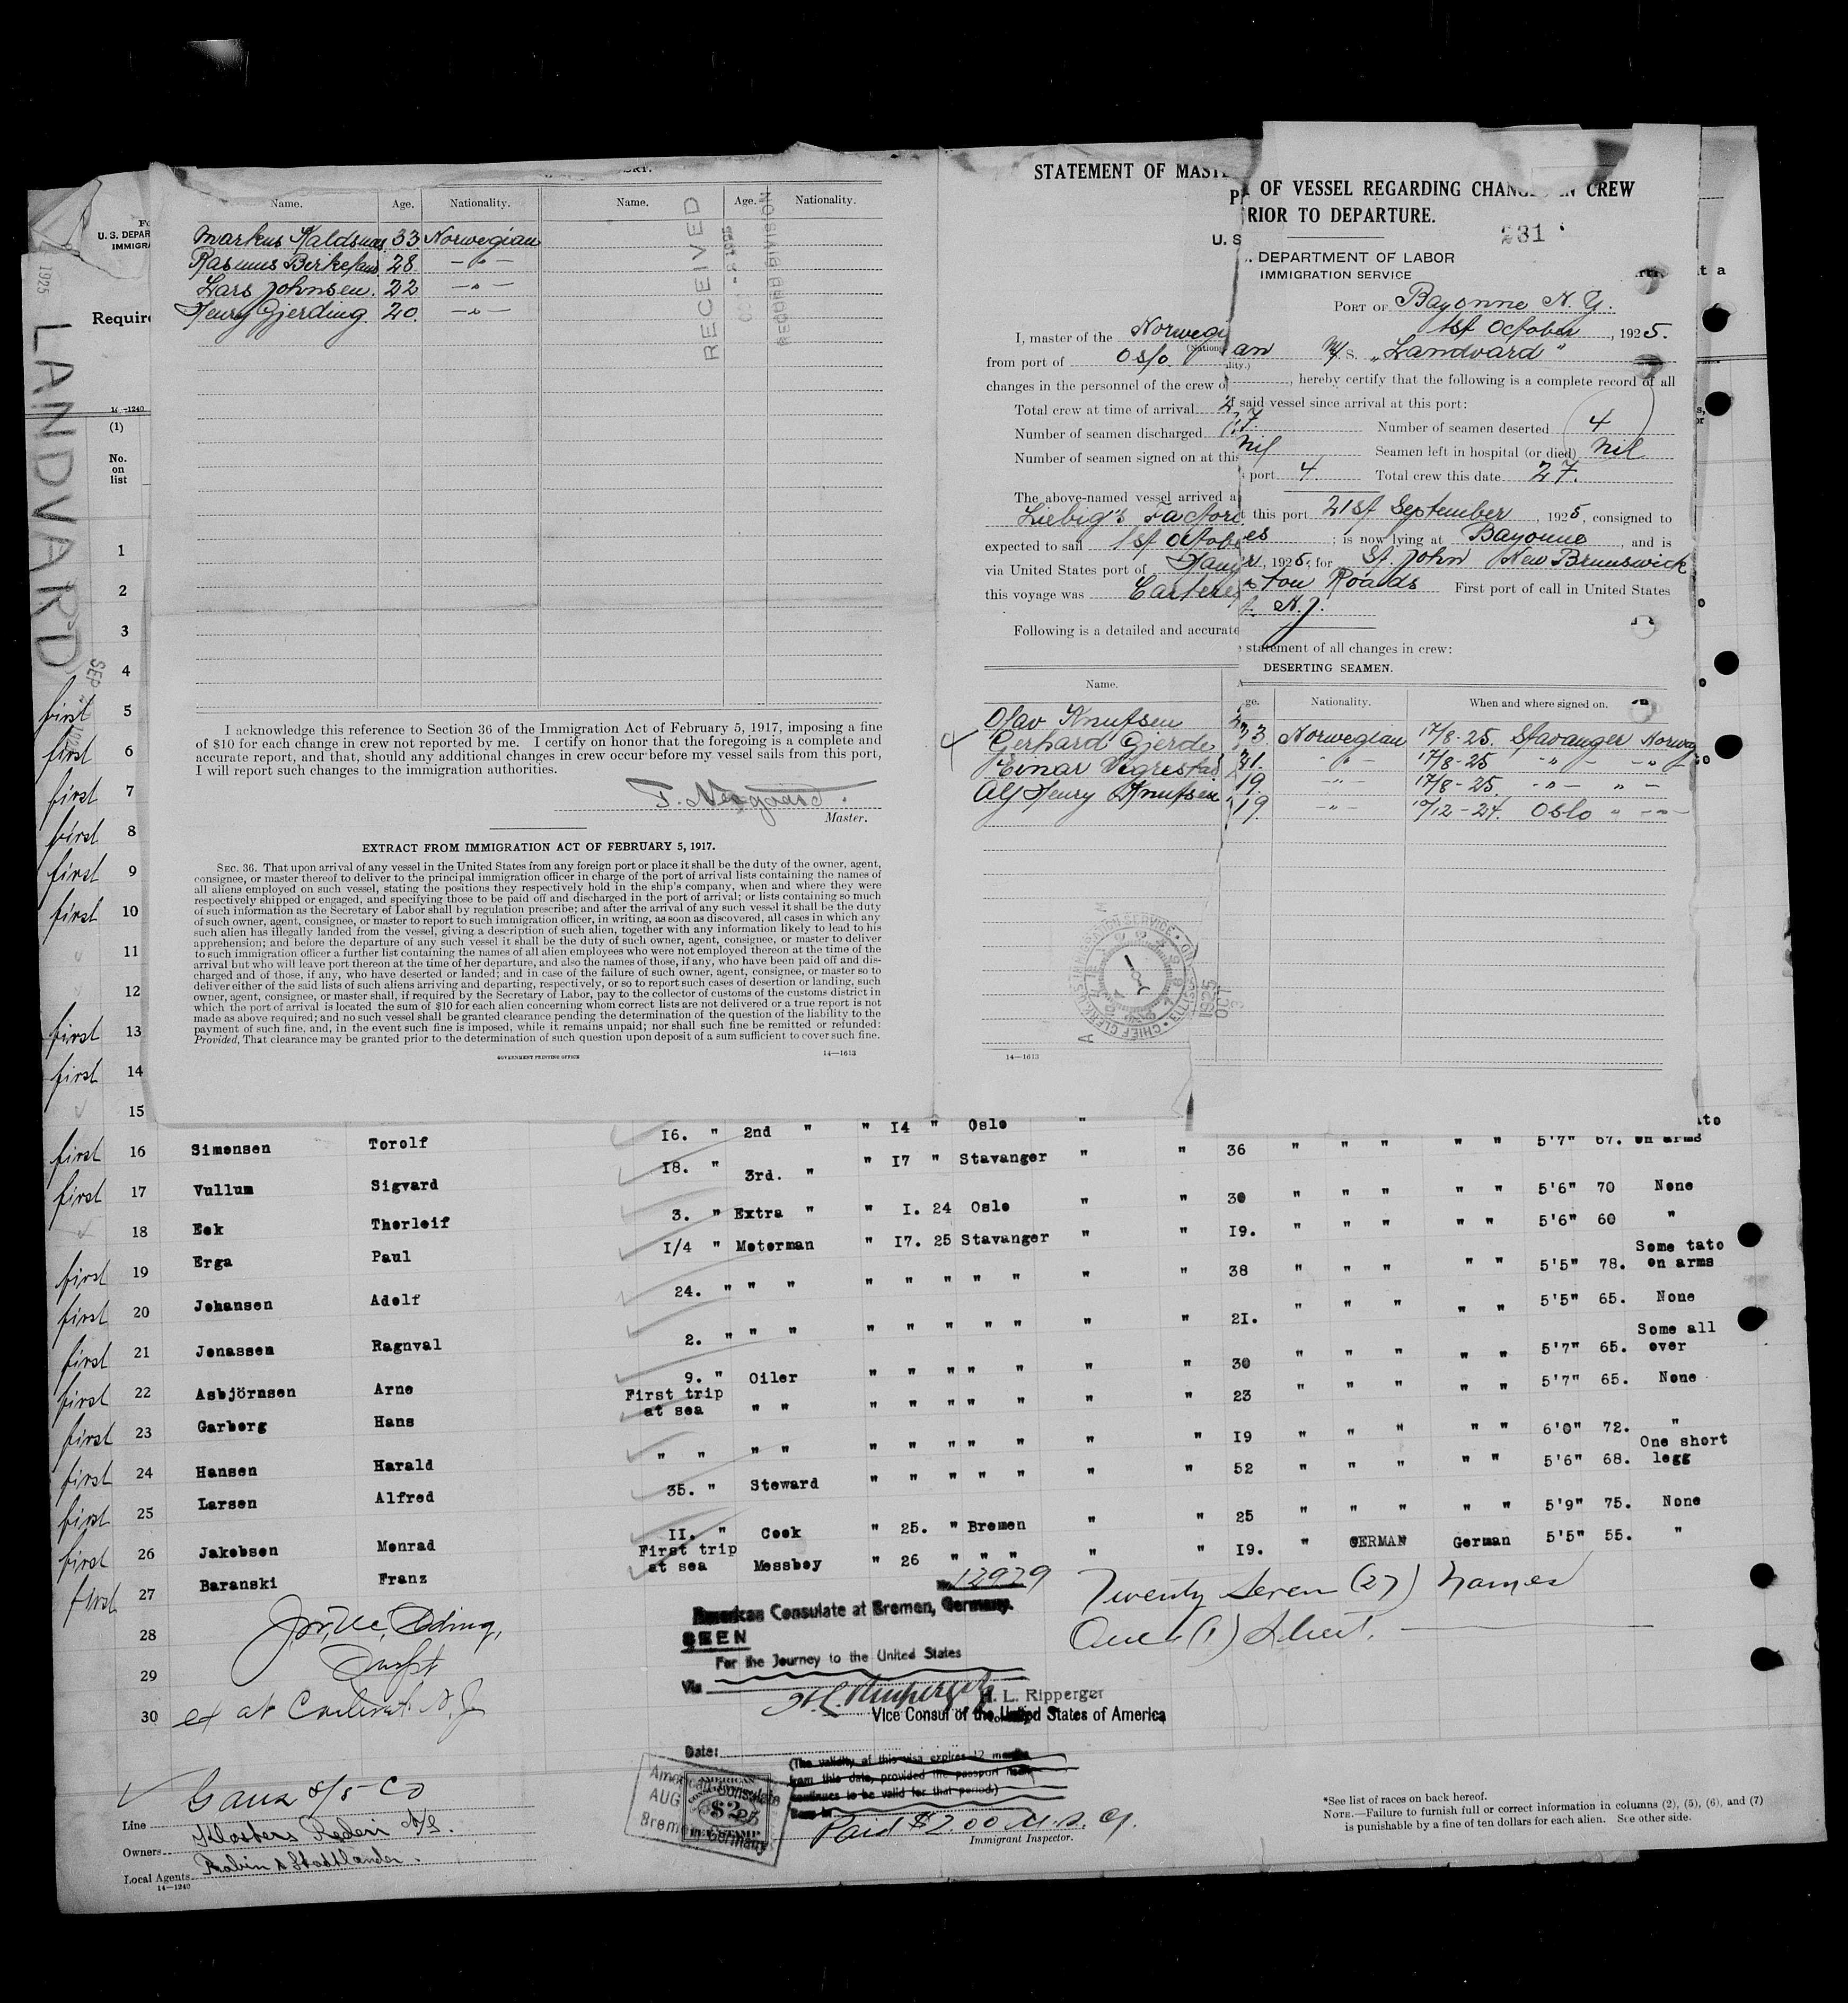 Name. Age. Nationality. Name. Age. Nationality.
Markus Kaldsnes 33 Norwegian
Rasmus Birkeland 28 — " —
Lars Johnsen. 22 — " —
Henry Gjerding 20. — " —
RECEIVED
I acknowledge this reference to Section 36 of the Immigration Act of February 5, 1917, imposing a fine
of $10 for each change in crew not reported by me. I certify on honor that the foregoing is a complete and
accurate report, and that, should any additional changes in crew occur before my vessel sails from this port,
I will report such changes to the immigration authorities.
Master.
EXTRACT FROM IMMIGRATION ACT OF FEBRUARY 5, 1917.
SEC. 36. That upon arrival of any vessel in the United States from any foreign port or place it shall be the duty of the owner, agent,
consignee, or master thereof to deliver to the principal immigration officer in charge of the port of arrival lists containing the names of
all aliens employed on such vessel, stating the positions they respectively hold in the ship's company, when and where they were
respectively shipped or engaged, and specifying those to be paid off and discharged in the port of arrival; or lists containing so much
of such information as the Secretary of Labor shall by regulation prescribe; and after the arrival of any such vessel it shall be the duty
of such owner, agent, consignee, or master to report to such immigration officer, in writing, as soon as discovered, all cases in which any
such alien has illegally landed from the vessel, giving a description of such alien, together with any information likely to lead to his
apprehension; and before the departure of any such vessel it shall be the duty of such owner, agent, consignee, or master to deliver
to such immigration officer a further list containing the names of all alien employees who were not employed thereon at the time of the
arrival but who will leave port thereon at the time of her departure, and also the names of those, if any, who have been paid off and dis-
charged and of those, if any, who have deserted or landed; and in case of the failure of such owner, agent, consignee, or master so to
deliver either of the said lists of such aliens arriving and departing, respectively, or so to report such cases of desertion or landing, such
owner, agent, consignee, or master shall, if required by the Secretary of Labor, pay to the collector of customs of the customs district in
which the port of arrival is located the sum of $10 for each alien concerning whom correct lists are not delivered or a true report is not
made as above required; and no such vessel shall be granted clearance pending the determination of the question of the liability to the
payment of such fine, and, in the event such fine is imposed, while it remains unpaid; nor shall such fine be remitted or refunded:
Provided, That clearance may be granted prior to the determination of such question upon deposit of a sum sufficient to cover such fine.
GOVERNMENT PRINTING OFFICE 14—1613
STATEMENT OF MASTER OF VESSEL REGARDING CHANGES IN CREW
PRIOR TO DEPARTURE.
231
U. S. DEPARTMENT OF LABOR
IMMIGRATION SERVICE
PORT OF Bayonne N. Y.
1st October, 1925.
I, master of the Norwegian M/S. "Landvard"
(Nationality.)
from port of Oslo, hereby certify that the following is a complete record of all
changes in the personnel of the crew of said vessel since arrival at this port:
Total crew at time of arrival 27. Number of seamen deserted 4
Number of seamen discharged nil Seamen left in hospital (or died) nil
Number of seamen signed on at this port 4. Total crew this date 27.
The above-named vessel arrived at this port 21st September, 1925, consigned to
Liebig's Factories; is now lying at Bayonne, and is
expected to sail 1st October, 1925, for St. John New Brunswick
via United States port of Hampton Roads First port of call in United States
this voyage was Carteret N.J.
Following is a detailed and accurate statement of all changes in crew:
DESERTING SEAMEN.
Name. Age. Nationality. When and where signed on.
Olav Knutsen 23 Norwegian 17/8-25. Stavanger Norway
Gerhard Gjerde 21. - " - 17/8-25 - " - - " -
Einar Vigrestad 19. - " - 17/8-25. - " - " -
Alf Henry Knutsen 19. - " - 10/12-24. Oslo " - " -
14—1613
U. S. DEPAR
IMMIGRA
Require
LANDVARD
1925
14-1240
(1)
No.
on
list
1
2
3
4
first 5
first 6
first 7
first 8
first 9
first 10
11
12
first 13
first 14
15
first 16 Simonsen Torolf 16. " 2nd " " 14 " Oslo " " 36 " " " " " 5'7" 67. on arms
first 17 Vullum Sigvard 18. " 3rd. " " 17 " Stavanger " " 30 " " " " " 5'6" 70 None
18 Eek Thorleif 3. " Extra " " 1. 24 Oslo " " 19. " " " " " 5'6" 60 "
first 19 Erga Paul 1/4 " Motorman " 17. 25 Stavanger " " 38 " " " " " 5'5" 78. Some tato on arms
first 20 Johansen Adolf 24. " " " " " " " " " " 21. " " " " " 5'5" 65. None
first 21 Jonassen Ragnval 2. " " " " " " " " " " 30 " " " " " 5'7" 65. Some all over
first 22 Asbjörnsen Arne 9. " Oiler " " " " " " " 23 " " " " " 5'7" 65. None
first 23 Garborg Hans First trip at sea " " " " " " " " " 19 " " " " " 6'0" 72. "
first 24 Hansen Harald " " " " " " " " " " " 52 " " " " " 5'6" 68. One short legg
first 25 Larsen Alfred 35. " Steward " " " " " " " 25 " " " " " 5'9" 75. None
first 26 Jakobsen Monrad 11. " Cook " 25. " Bremen " " 19. " GERMAN German 5'5" 55. "
first 27 Baranski Franz First trip at sea Messboy " 26 " " " "
28
29
30
No. 12979
American Consulate at Bremen, Germany.
SEEN
For the Journey to the United States
Via
H. L. Ripperger
Vice Consul of the United States of America
Twenty Seven (27) names
One (1) Sheet.
Date:
(The validity of this visa expires 12 months
from this date, provided the passport
continues to be valid for that period.)
American Consulate
AUG
Bremen Germany
$2
Paid $2.00
Immigrant Inspector.
Line
Owners Klosters Rederi A/S.
Local Agents
14—1240
*See list of races on back hereof.
NOTE.—Failure to furnish full or correct information in columns (2), (5), (6), and (7)
is punishable by a fine of ten dollars for each alien. See other side.